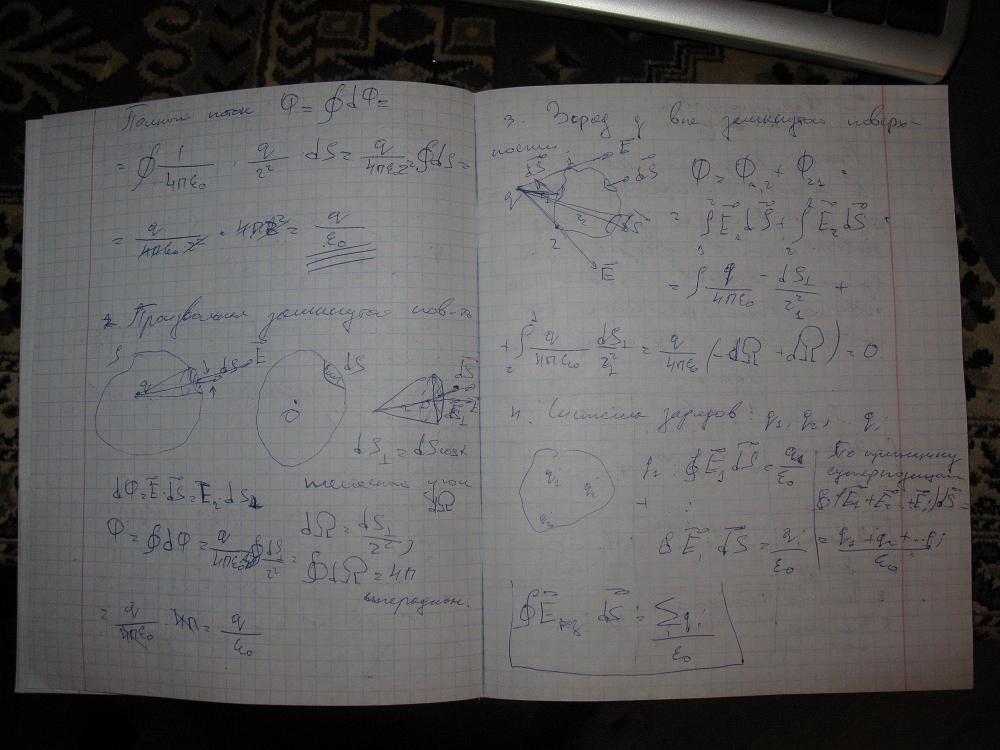 Полный поток Φ = ∮dΦ =
= ∮ 1/4πε₀ · q/r² dS = q/4πε₀r² ∮dS =
= q/4πε₀r² · 4πr² = q/ε₀
2. Произвольная замкнутая пов-ть
S q dS E
dS
dS⊥ = dS cosα
dΦ = E·dS = E₂·dS⊥
телесный угол
dΩ
Φ = ∮dΦ = q/4πε₀ ∮dS/r² =
dΩ = dS⊥/r²;
= ∮dΩ = 4π
= q/4πε₀ · 4π = q/ε₀
3. Заряд q вне замкнутой поверх-
ности.
q 1 2 E dS dS E
Φ = Φ₁,₂ + Φ₂₁ =
= ∫E₁dS + ∫E₂dS =
= ∫ q/4πε₀ - dS⊥/r₁² +
+ ∫ q/4πε₀ dS⊥/r₂² = q/4πε₀ (-dΩ + dΩ) = 0
4. Система зарядов: q₁, q₂, ... qᵢ
q₁ q₂
q₁: ∮E₁dS = q₁/ε₀
+ :
∮Eᵢ dS = qᵢ/ε₀
По принципу
суперпозиции
∮(E₁+E₂+Eᵢ)dS =
= q₁+q₂+...qᵢ/ε₀
∮E рез. dS = Σqᵢ/ε₀